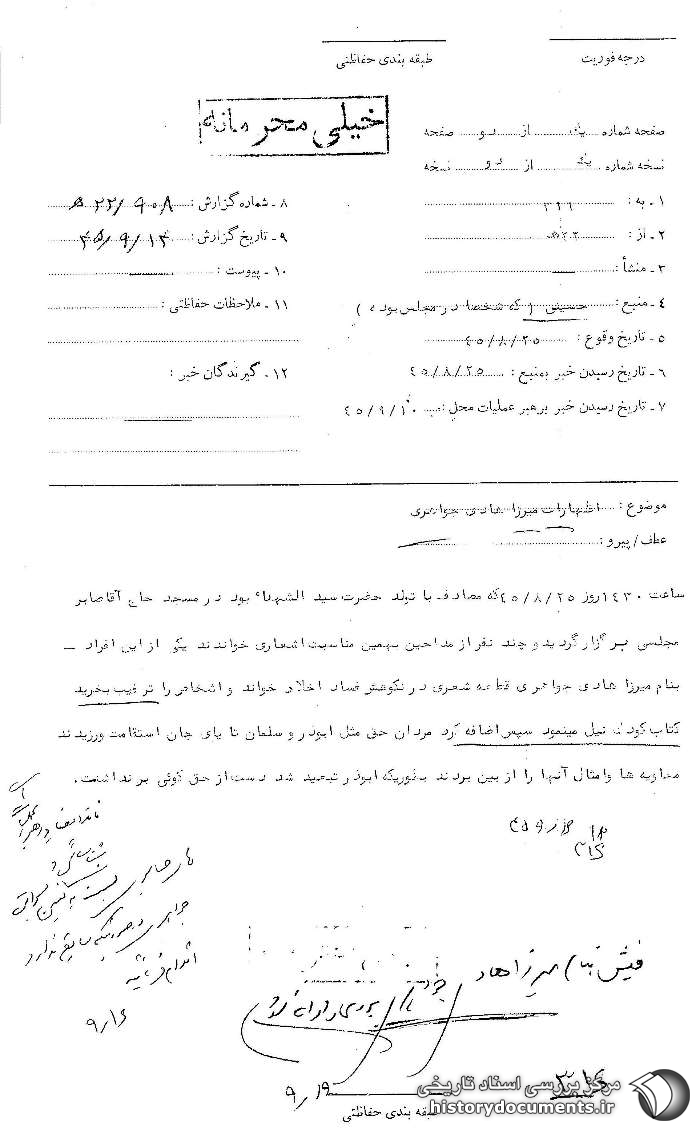 درجه فوریت
طبقه بندی حفاظتی
خیلی محرمانه
صفحه شماره یک از دو صفحه
نسخه شماره یک از دو نسخه
۱ ـ به : ۳۱۶
۲ ـ از :
۳ ـ منشأ :
۴ ـ منبع : حسینی ( که شخصا در مجلس بوده )
۵ ـ تاریخ وقوع : ۴۵/۸/۲۵
۶ ـ تاریخ رسیدن خبر بمنبع : ۴۵/۸/۲۵
۷ ـ تاریخ رسیدن خبر برهبر عملیات محل : ۴۵/۹/۱۰
۸ ـ شماره گزارش : ۲۲/۹۰۸ ه
۹ ـ تاریخ گزارش : ۴۵/۹/۱۳
۱۰ ـ پیوست :
۱۱ ـ ملاحظات حفاظتی :
۱۲ ـ گیرندگان خبر :
موضوع : اظهارات میرزا هادی جواهری
عطف/ پیرو :
ساعت ۱۴۳۰ روز ۴۵/۸/۲۵ که مصادف با تولد حضرت سید الشهداء بود در مسجد حاج آقاصابر
مجلسی برگزار گردید و چند نفر از مداحین بهمین مناسبت اشعاری خواندند یکی از این افراد ـ
بنام میرزا هادی جواهری قطعه شعری در نکوهش فساد اخلاق خواند و اشخاص را ترغیب بخرید
کتاب کودک نیل مینمود سپس اضافه کرد مردان حق مثل ابوذر و سلمان تا پای جان استقامت ورزیدند
معاویه ها و امثال آنها را از بین بردند بطوریکه ابوذر تبعید شد دست از حق گوئی برنداشت .
فیش بنام میرزا هادی
۹/۱۶
۹/۱۹
۳۱۶
طبقه بندی حفاظتی
مرکز بررسی اسناد تاریخی
historydocuments.ir